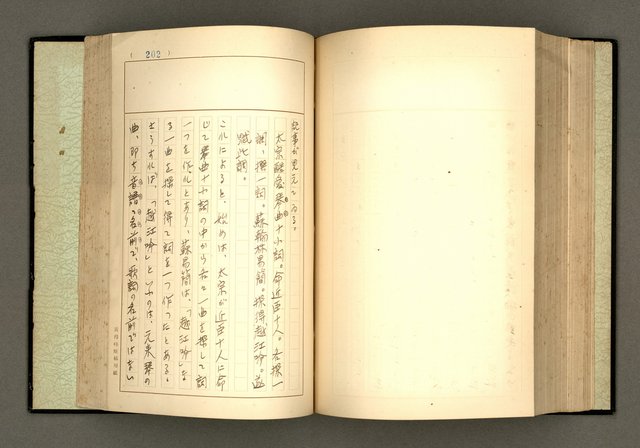 ( 202 )
記事が見えてゐる。
太宗酷愛琴曲十小詞。命近臣十人。各探一
調、撰一詞。蘇翰林易簡。探得越江吟。遂
賦此詞。
これによると、始めは、太宗が近臣十人に命
じて琴曲十小詞の中から各〻一曲を探して詞
一つを作れとあり、蘇易簡は、「越江吟」な
る一曲を探して得て詞を一つ作つたとある。
さうすれば、「越江吟」といふのは、元来琴の
曲、即ち音譜の名前で、歌詞の名前ではない